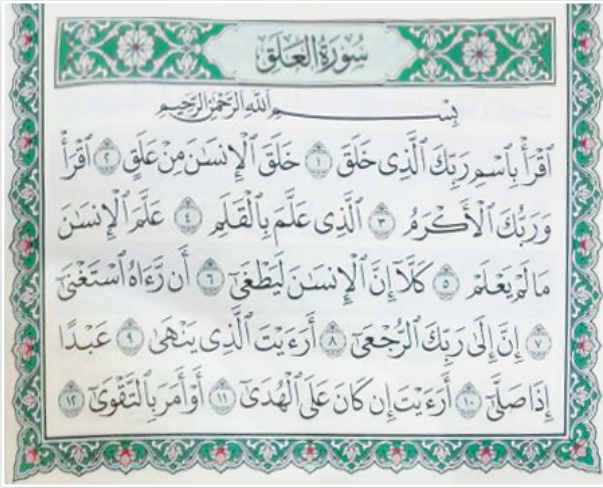 سُورَةُ الْعَلَقِ
بِسْمِ اللَّهِ الرَّحْمَٰنِ الرَّحِيمِ
ٱقْرَأْ بِٱسْمِ رَبِّكَ ٱلَّذِى خَلَقَ ١ خَلَقَ ٱلْإِنسَٰنَ مِنْ عَلَقٍ ٢ ٱقْرَأْ
وَرَبُّكَ ٱلْأَكْرَمُ ٣ ٱلَّذِى عَلَّمَ بِٱلْقَلَمِ ٤ عَلَّمَ ٱلْإِنسَٰنَ
مَا لَمْ يَعْلَمْ ٥ كَلَّآ إِنَّ ٱلْإِنسَٰنَ لَيَطْغَىٰٓ ٦ أَن رَّءَاهُ ٱسْتَغْنَىٰٓ
٧ إِنَّ إِلَىٰ رَبِّكَ ٱلرُّجْعَىٰٓ ٨ أَرَءَيْتَ ٱلَّذِى يَنْهَىٰ ٩ عَبْدًا
إِذَا صَلَّىٰٓ ١٠ أَرَءَيْتَ إِن كَانَ عَلَى ٱلْهُدَىٰٓ ١١ أَوْ أَمَرَ بِٱلتَّقْوَىٰٓ ١٢